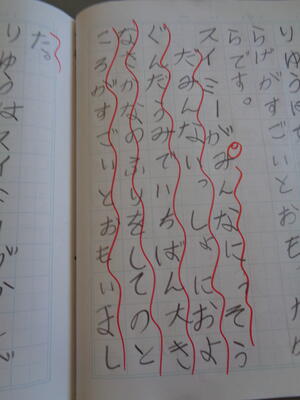 りゆうは
らです。
スイミーがみんなに、そう
だみんないっしょにおよ
ぐんだうみでいちばん大き
なさかなのふりをしてのと
ころがすごいとおもいまし
た
りゆうはスイミーが